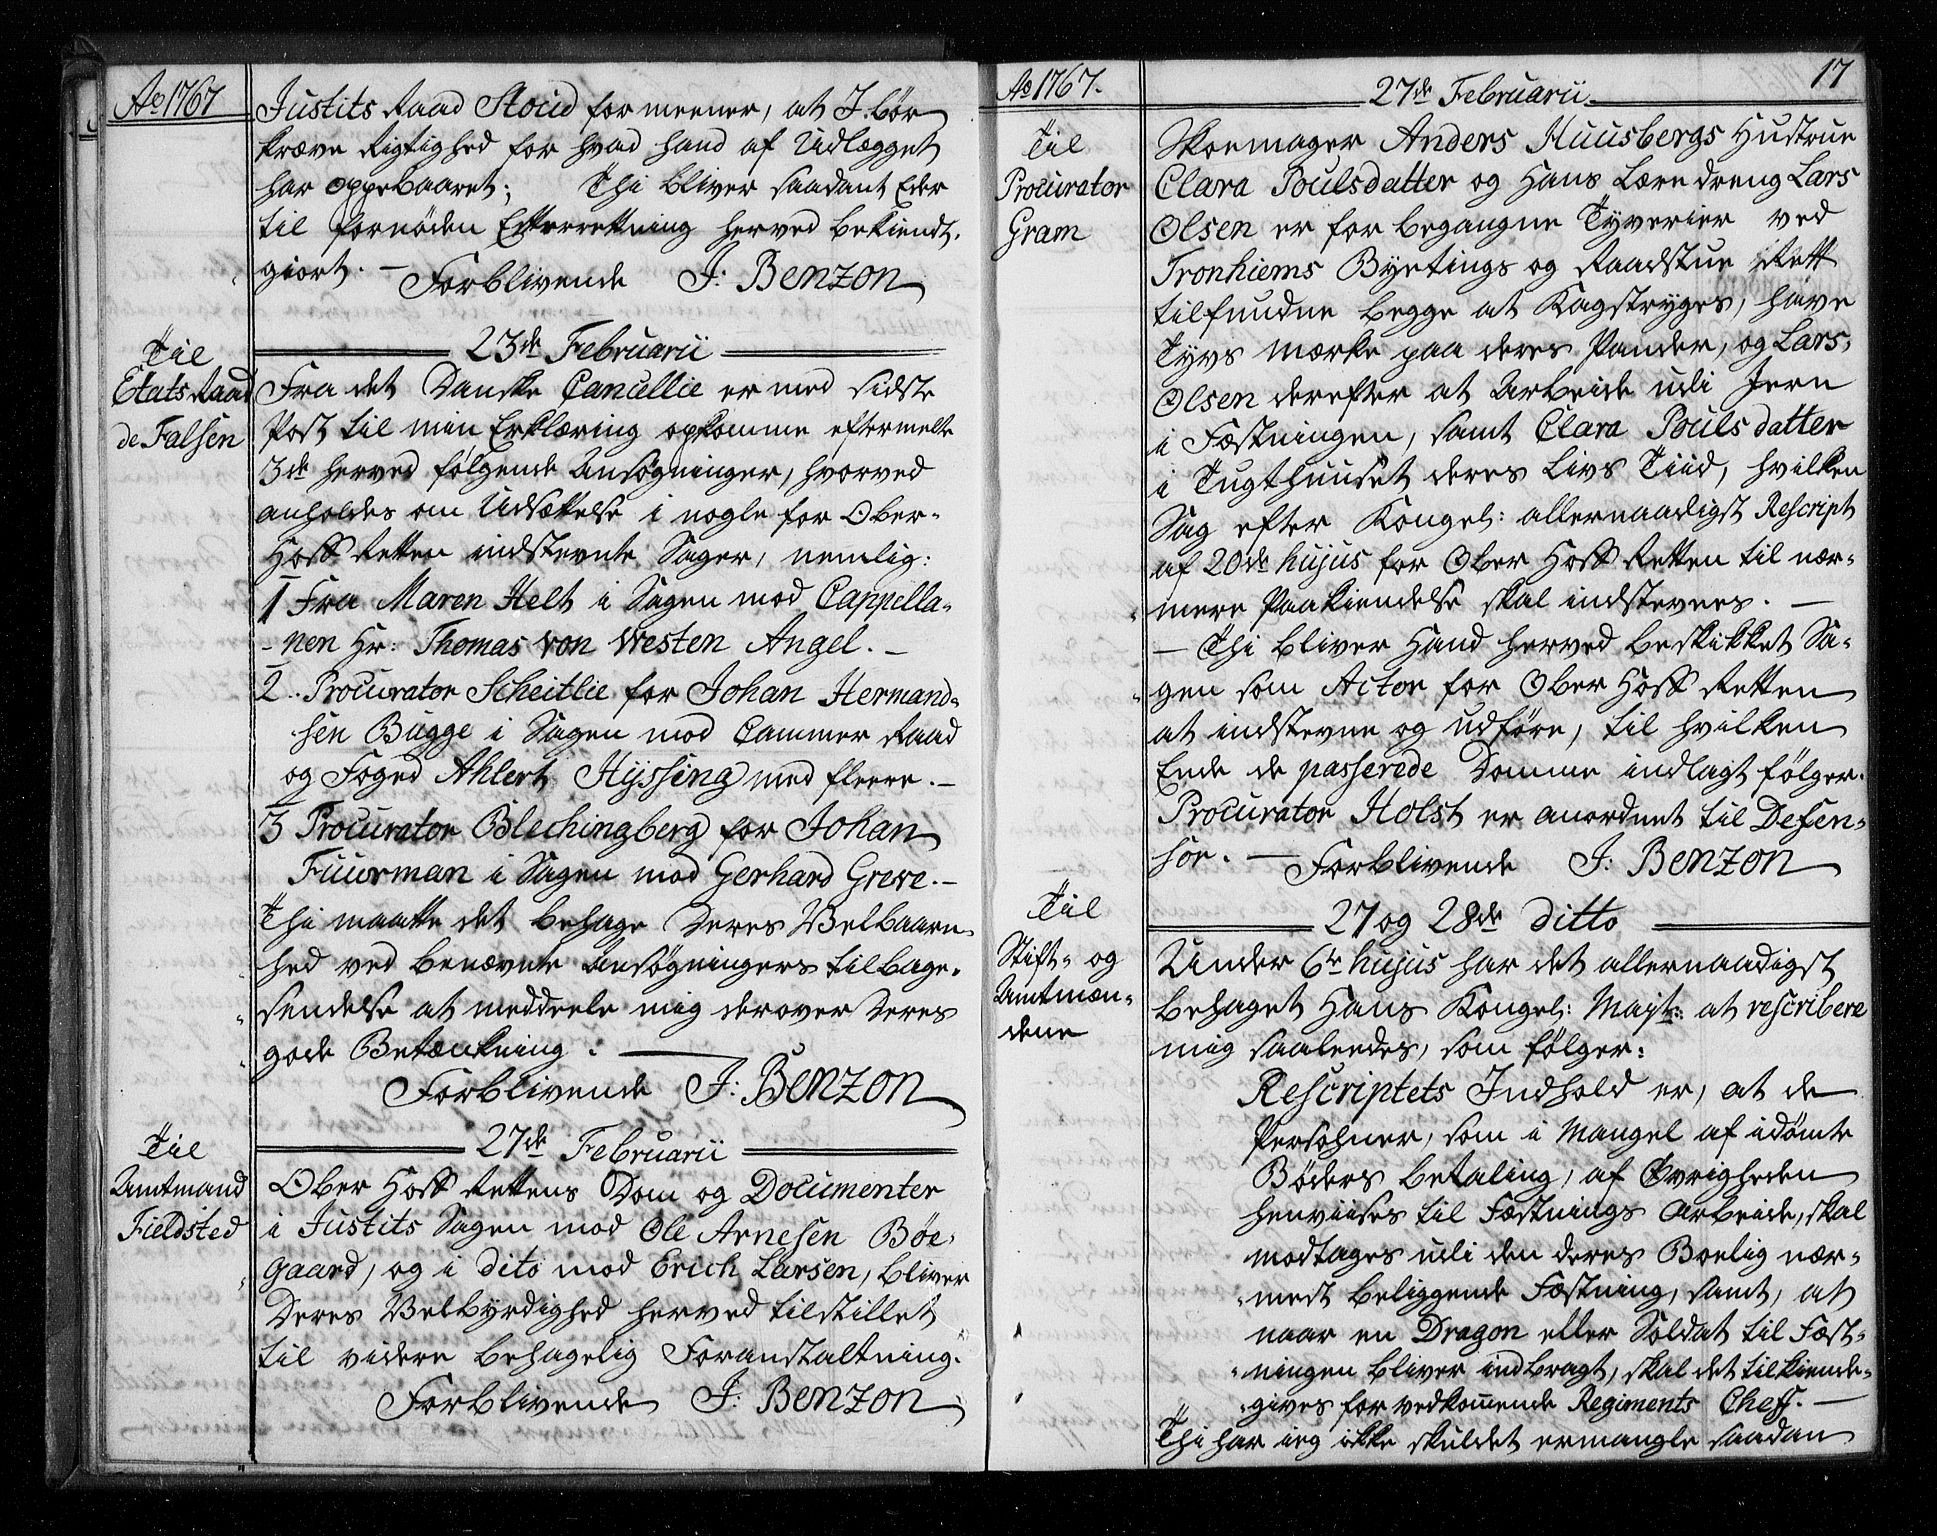 Ao 1767
Justits Raad Stoud formeener, at I bör
kræve Rigtighed for hvad hand af Udlægget
har oppebaaret; Thi bliver saadant Eder
til fornöden Efterretning herved bekiendt-
giort. — Forblivende J: Benzon
23de Februarii
Til
Etats Raad
de Falsen
Fra det Danske Cancellie er med sidste
Post til min Erklæring opkomme eftermelte
3de herved fölgende Ansögninger, hvorved
anholdes om Udsættelse i nogle for Ober-
Hoff Retten indstevnte Sager, nemlig:
1 Fra Maren Helt i Sagen mod Cappella-
-nen Hr: Thomas von Westen Angel. —
2.. Procurator Scheitlie for Johan Hermand-
sen Bugge i Sagen mod Cammer Raad
og Foged Ahlert Hyssing med fleere. —
3 Procurator Blechingberg for Johan
Fuurman i Sagen mod Gerhard Greve. —
Thi maatte det behage Deres Velbaarn-
hed ved benævnte Ansögningers tilbage-
sendelse at meddeele mig derover Deres
gode Betænkning. —
Forblivende J: Benzon
27de Februarii
Til
Amtmand
Fieldsted
Ober Hoff Rettens Dom og Documenter
i Justits Sagen mod Ole Arnesen Böe-
gaard, og i dito mod Erich Larsen, bliver
Deres Velbyrdighed herved tilstillet
til videre behagelig Foranstaltning.
Forblivende J: Benzon
Ao 1767.
17
27de Februarii
Til
Procurator
Gram
Skoemager Anders Huusbergs Hustrue
Clara Poulsdatter og Hans Læredreng Lars
Olsen er for begangne Tyverier ved
Tronhiems Byetings og Raadstue Rett
tilfundne begge at Kagstryges, have
Tyvs mærke paa deres Pander, og Lars
Olsen derefter at Arbeide udi Jern
i Fæstningen, samt Clara Pouls datter
i Tugthuuset deres Livs Tiid, hvilken
Sag efter Kongel: allernaadigst Rescript
af 20de hujus for Ober Hoff Retten til nær-
mere Paakiendelse skal indstevnes. —
— Thi bliver Hand herved beskikket Sa-
gen som Actor for Ober Hoff Retten
at indstevne og udföre, til hvilken
Ende de passerede Domme indlagt fölger.
Procurator Holst er anordnet til Defen-
sor. — Forblivende J: Benzon
27 og 28de ditto
Til
Stift- og
Amtmæn-
dene
Under 6te hujus har det allernaadigst
behaget Hans Kongel: Majt: at rescribere
mig saaledes, som fölger:
Rescriptets Indhold er, at de
Persohner, som i Mangel af idömte
Böders betaling, af Øvrigheden
henviises til Fæstnings Arbeide, skal
modtages udi den deres Boelig nær-
-mest beliggende Fæstning, samt, at
naar en Dragon eller Soldat til Fæst-
-ningen bliver indbragt, skal det tilkiende-
-gives for vedkommende Regiments Cheff. —
Thi har ieg ikke skuldet ermangle saadan